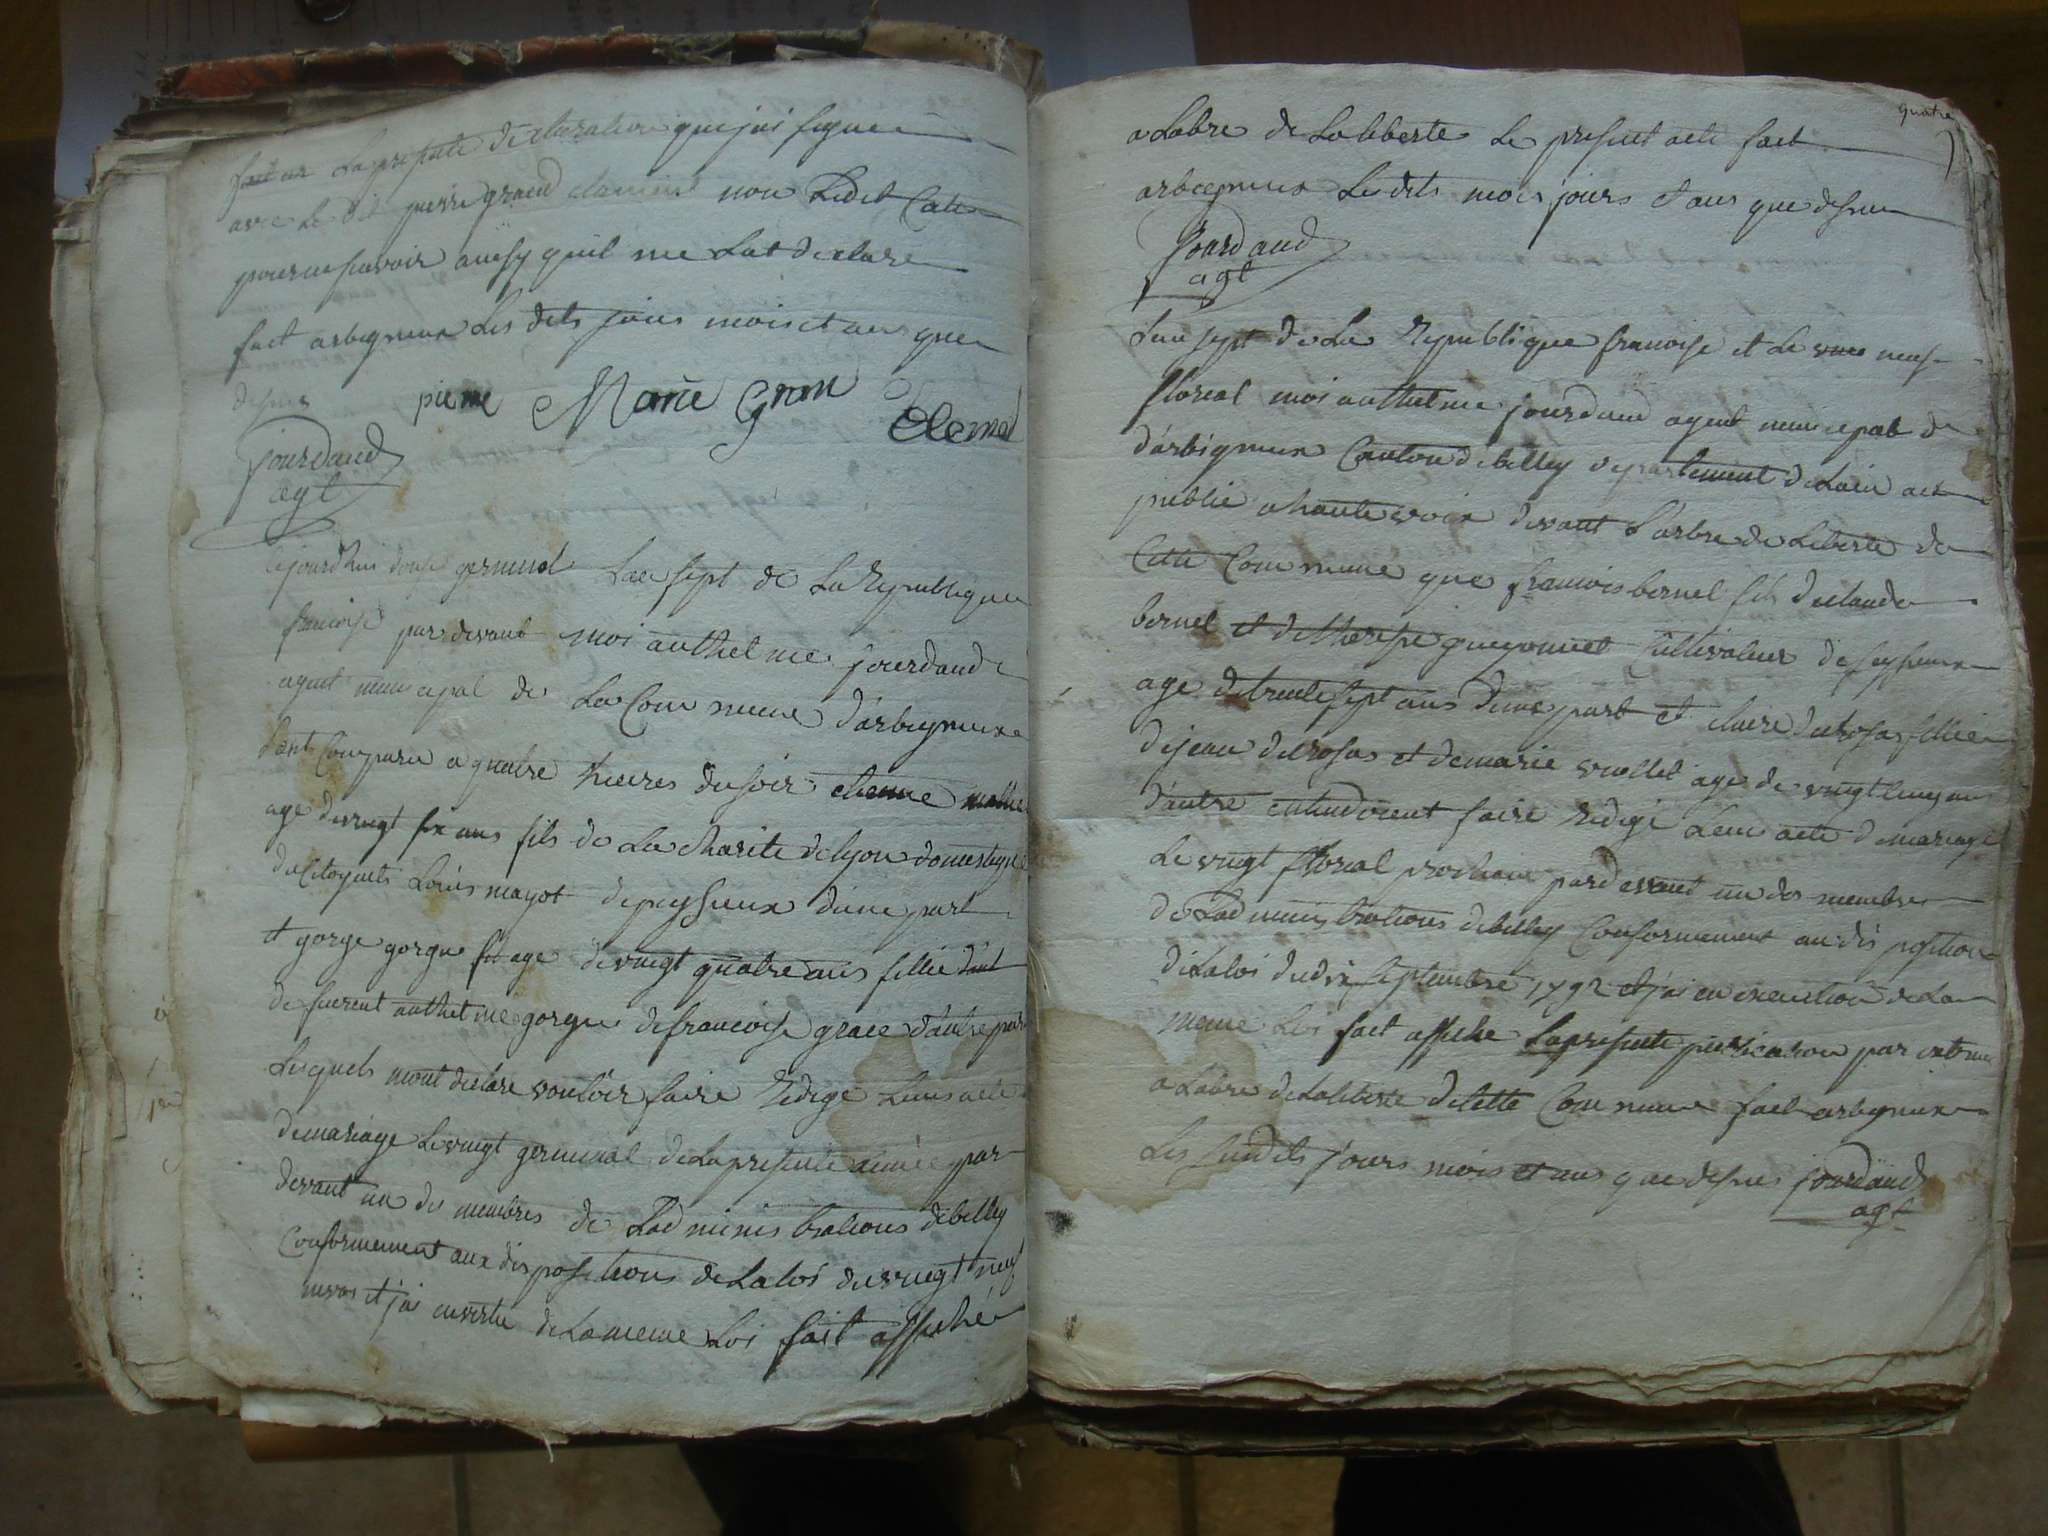 fait en la presente declaration que j'ai signee
avec le dit pierre grand clement non ledit
pour ne scavoir ainsy quil me la declare
fait arbigneux les dits jours mois et an que
dessus pierre Marie Gran Clemed
jourdand
agt
cejourdhui douse germinal L'an sept de la Republique
francoise par devant moi anthelme jourdand
agent municipal de la Commune d'arbigneux
sont Comparu a quatre heures du soir etienne
age de vingt six ans fils de la charite de lyon domestique
du Citoyent Louis mayot de peyssieux d'une part
et gorge gorgue age de vingt quatre ans fillie
de fuerent anthelme gorgue de francoise grace d'autre part
Lesquels mont declare vouloir faire Redige leurs acte
de mariage le vingt germinal de la presente annee par
devant un de membres de L'administrations de belley
Conformement aux dispositions de la loi du vingt neuf
et j'ai en vertu de la meme Loi fait affiché
quatre
a labre de la liberte le present acte fait
arbigneux les dits mois jours et ans que dessus
jourdand
agt
L'an sept de la Republique francoise et le neuf
floreal moi anthelme jourdand agent municipal de
d'arbigneux Canton de belley departement de Lain ai
publié a haute voix devant l'arbre de liberte de
Cette Commune que francois bernel fils de claude
bernel et de therese guyonnet Cultivateur de peyssieux
age de trente sept ans d'une part et claire delrosas fillie
de jean delrosas et de marie vuollet age de vingt cinq ans
d'autre entendoient faire Redigé leur acte de mariage
Le vingt floreal prochain pardevant un des membres
de L'administrations de belley Conformement au disposition
de la loi du dix septembre 1792 et j'ai en execution de la
meme Loi fait affiche la presente publication par
a labre de la liberte de cette Commune fait arbigneux
Les susdits jours mois et an que dessus jourdand
agt